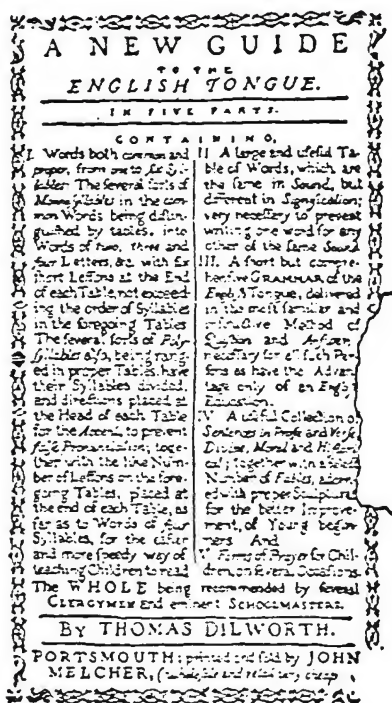 A NEW GUIDE
TO THE
ENGLISH TONGUE.
IN FIVE PARTS.
CONTAINING,
I. Words both common and
proper, from one to six Syl-
lables: The several sorts of
Monosyllables in the com-
mon Words being distin-
guished by tables, into
Words of two, three and
four Letters, &c. with six
short Lessons at the End
of each Table, not exceed-
ing the order of Syllables
in the foregoing Tables
The several sorts of Poly-
syllables also, being rang-
ed in proper Tables, have
their Syllables divided,
and directions placed at
the Head of each Table
for the Accent, to prevent
false Pronunciation; toge-
ther with the like Num-
ber of Lessons on the fore-
going Tables, placed at
the end of each Table, as
far as to Words of four
Syllables, for the easier
and more speedy way of
teaching Children to read
II A large and useful Ta-
ble of Words, which are
the same in Sound, but
different in Signification;
very necessary to prevent
writing one word for any
other of the same Sound
III. A short but compre-
hensive GRAMMAR of the
English Tongue, delivered
in the most familiar and
instructive Method of
Question and Answer;
necessary for all such Per-
sons as have the Advan-
tage only of an English
Education.
IV A useful Collection of
Sentences in Prose and Verse,
Divine, Moral and Histori-
cal; together with a select
Number of Fables, adorn-
ed with proper Sculptures
for the better Improve-
ment, of Young begin-
ners And
V. Forms of Prayer for Chil-
dren, on several Occasions.
The WHOLE being recommended by several
CLERGYMEN and eminent SCHOOLMASTERS.
By THOMAS DILWORTH.
PORTSMOUTH: printed and sold by JOHN
MELCHER, (wholesale and retail very cheap